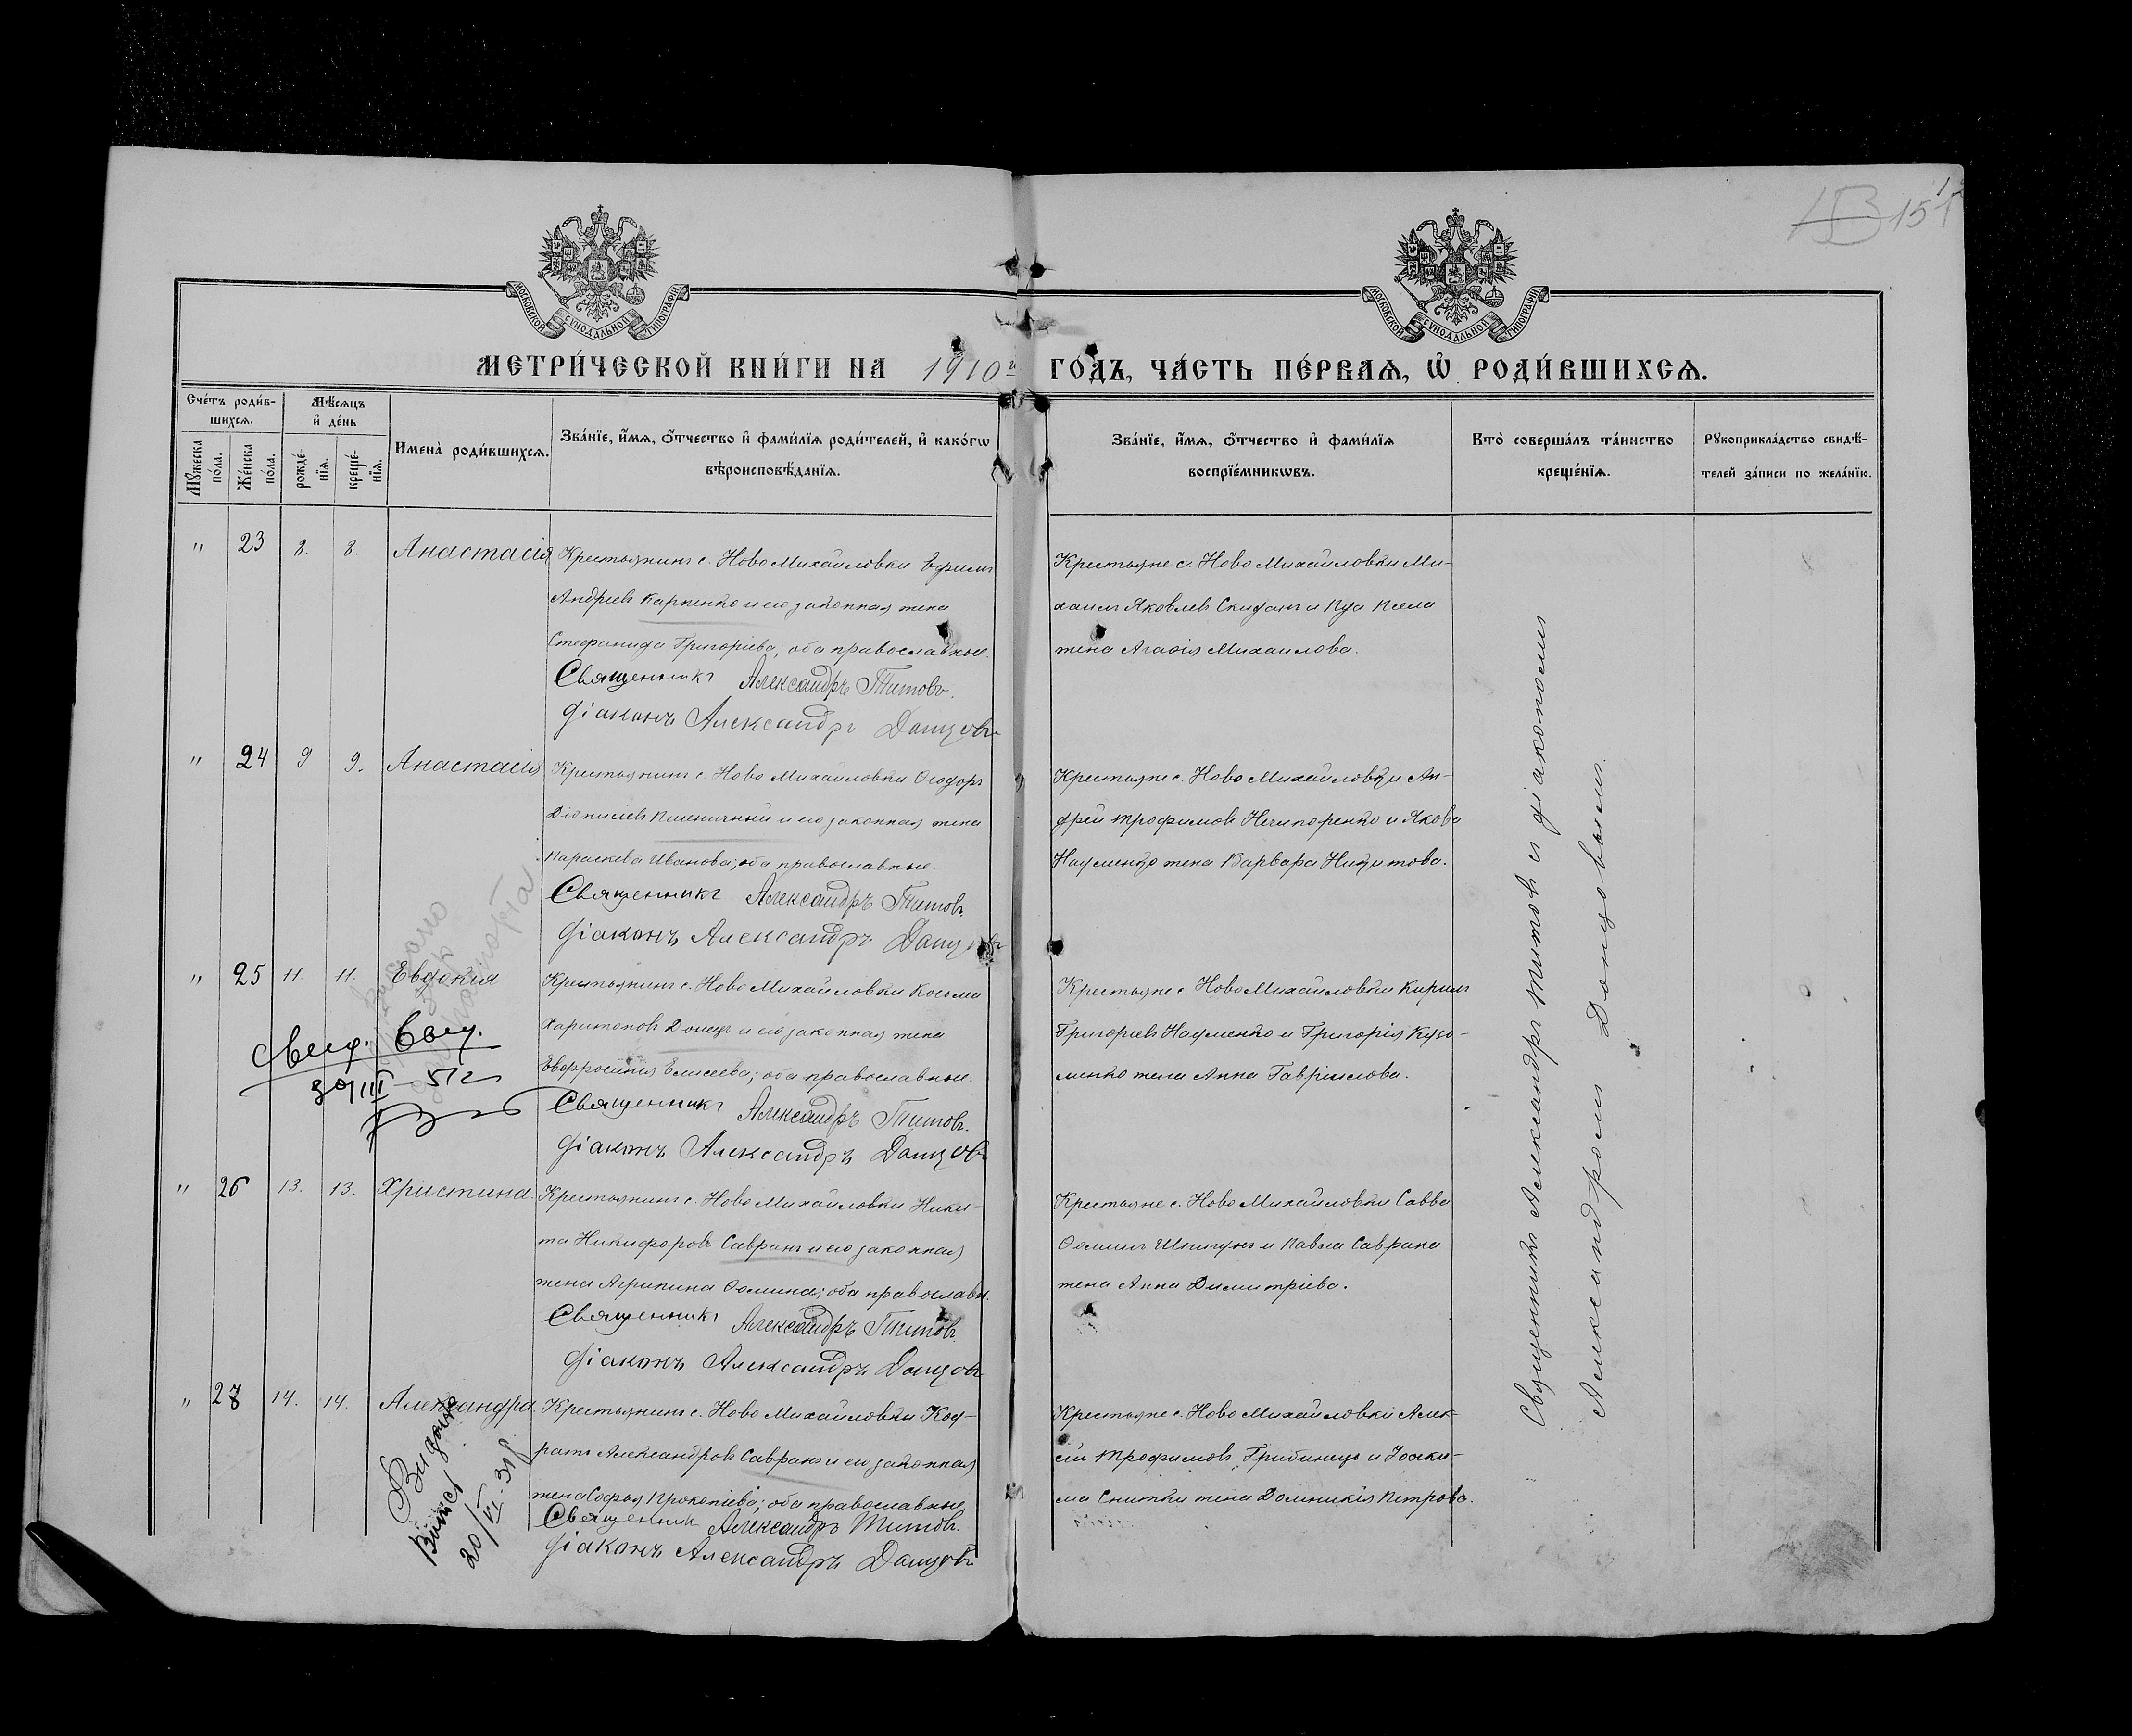 151
МОСКОВСКОЙ СѴНОДАЛЬНОЙ ТИПОГРАФІИ
МОСКОВСКОЙ СѴНОДАЛЬНОЙ ТИПОГРАФІИ
МЕТРИ́ЧЕСКОЙ КНИ́ГИ НА 1910 ГО́ДЪ, ЧА́СТЬ ПЕ́РВАѦ, Ѡ҆ РОДИ́ВШИХСѦ.
Сче́тъ роди́в-
шихсѧ.
Мꙋ́жеска
по́ла.
Же́нска
по́ла.
Мѣ́сѧцъ
и҆ де́нь
рожде́-
нїѧ.
креще́-
нїѧ.
Имена̀ роди́вшихсѧ.
Зва́нїе, и҆́мѧ, ѻ҆́тчество и҆ фами́лїѧ роди́телей, и҆ како́гѡ
вѣроисповѣ́данїѧ.
Зва́нїе, и҆́мѧ, ѻ҆́тчество и҆ фами́лїѧ
воспрїе́мникѡвъ.
Кто̀ соверша́лъ та́инство
креще́нїѧ.
Рꙋкоприкла́дство свидѣ́-
телей за́писи по жела́нїю.
" 23 8. 8. Анастасія
Крестьянинъ с. Ново Михайловки Ефимъ
Андреевъ Карпенко и его законная жена
Стефанида Григоріева, оба православные.
Священникъ Александръ Титовъ.
Діаконъ Александръ Донцовъ
Крестьяне с. Ново Михайловки Ми-
хаилъ Яковлевъ Скиданъ и
жена Агафія Михаилова.
" 24 9 9. Анастасія
Крестьянинъ с. Ново Михайловки Ѳеодоръ
Діонисіевъ Пшеничный и его законная жена
Параскева Иванова; оба православные.
Священникъ Александръ Титовъ.
Діаконъ Александръ Донцовъ
Крестьяне с. Ново Михайловки Ан-
дрей Трофимовъ Нечипоренко и Якова
Науменко жена Варвара Никитова.
" 25 11. 11. Евдокія
Крестьянинъ с. Ново Михайловки Косьма
Харитоновъ Донецъ и его законная жена
Евфросинія Елисеева; оба православные.
Священникъ Александръ Титовъ.
Діаконъ Александръ Донцовъ
Крестьяне с. Ново Михайловки Кирилъ
Григорьевъ Науменко и Григорія Кузь-
менко жена Анна Гавріилова.
" 26 13. 13. Христина.
Крестьянинъ с. Ново Михайловки Ники-
та Никифоровъ Савранъ и его законная
жена Агрипина Ѳомина; оба православн.
Священникъ Александръ Титовъ.
Діаконъ Александръ Донцовъ
Крестьяне с. Ново Михайловки Савва
Ѳоминъ Шпигунъ и Павла Саврана
жена Анна Димитріева.
" 27 14. 14. Александра.
Крестьянинъ с. Ново Михайловки Код-
ратъ Александровъ Савранъ и его законная
жена Софья Прокопіева; оба православные
Священник Александръ Титовъ.
Діаконъ Александръ Донцовъ
Крестьяне с. Ново Михайловки Алек-
сій Трофимовъ Грибинецъ и Іоаки-
ма Снитки жена Домникія Петрова.
Священникъ Александръ Титовъ съ діакономъ
Александромъ Донцовымъ.
30/III - 51г
20/VI-31